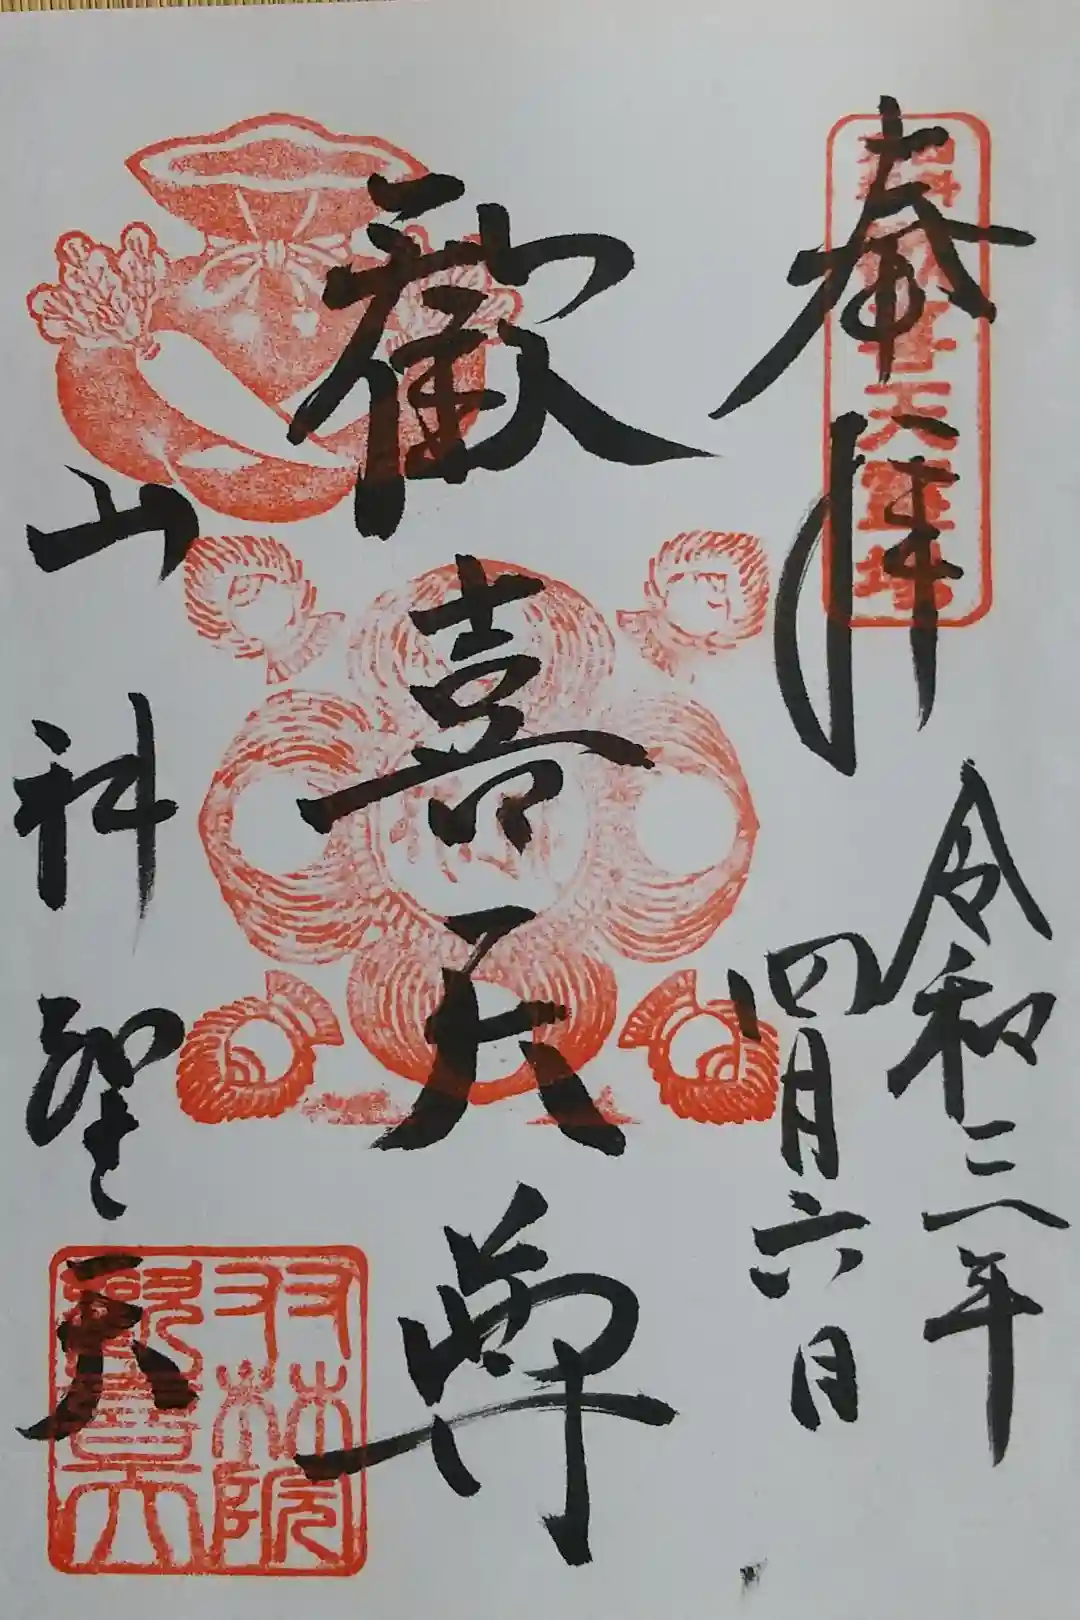 奉拝
令和三年
四月六日
歓喜天尊
山科聖天
双林院
歓喜天